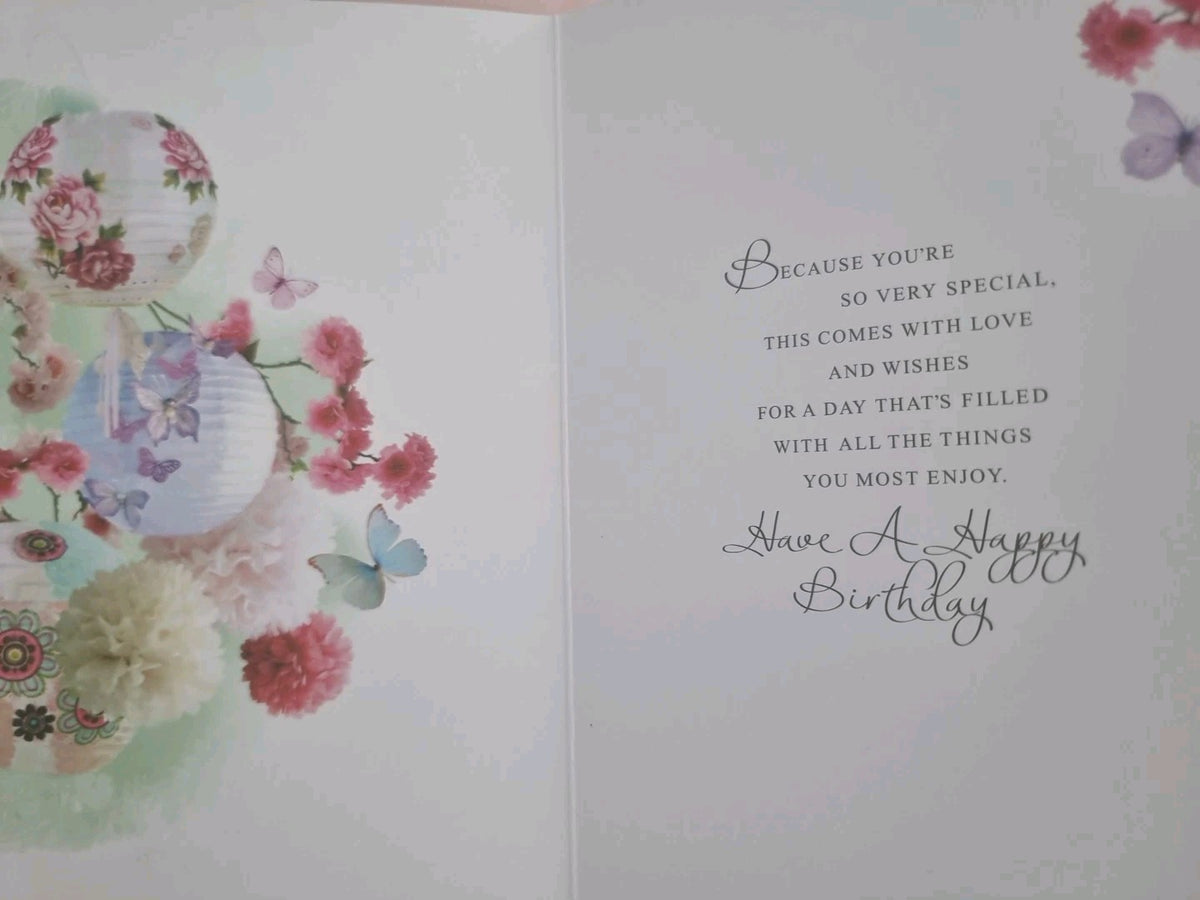 BECAUSE YOU'RE
SO VERY SPECIAL,
THIS COMES WITH LOVE
AND WISHES
FOR A DAY THAT'S FILLED
WITH ALL THE THINGS
YOU MOST ENJOY.
Have A Happy
Birthday